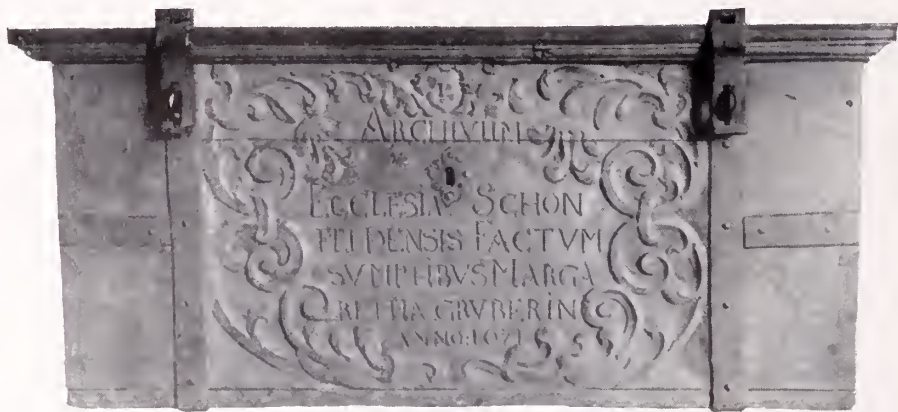 ARCHIVUM
ECCLESIÆ SCHON
FELDENSIS FACTVM
SVMPTIBVS MARGA
RETHA GRVBERIN
ANNO: